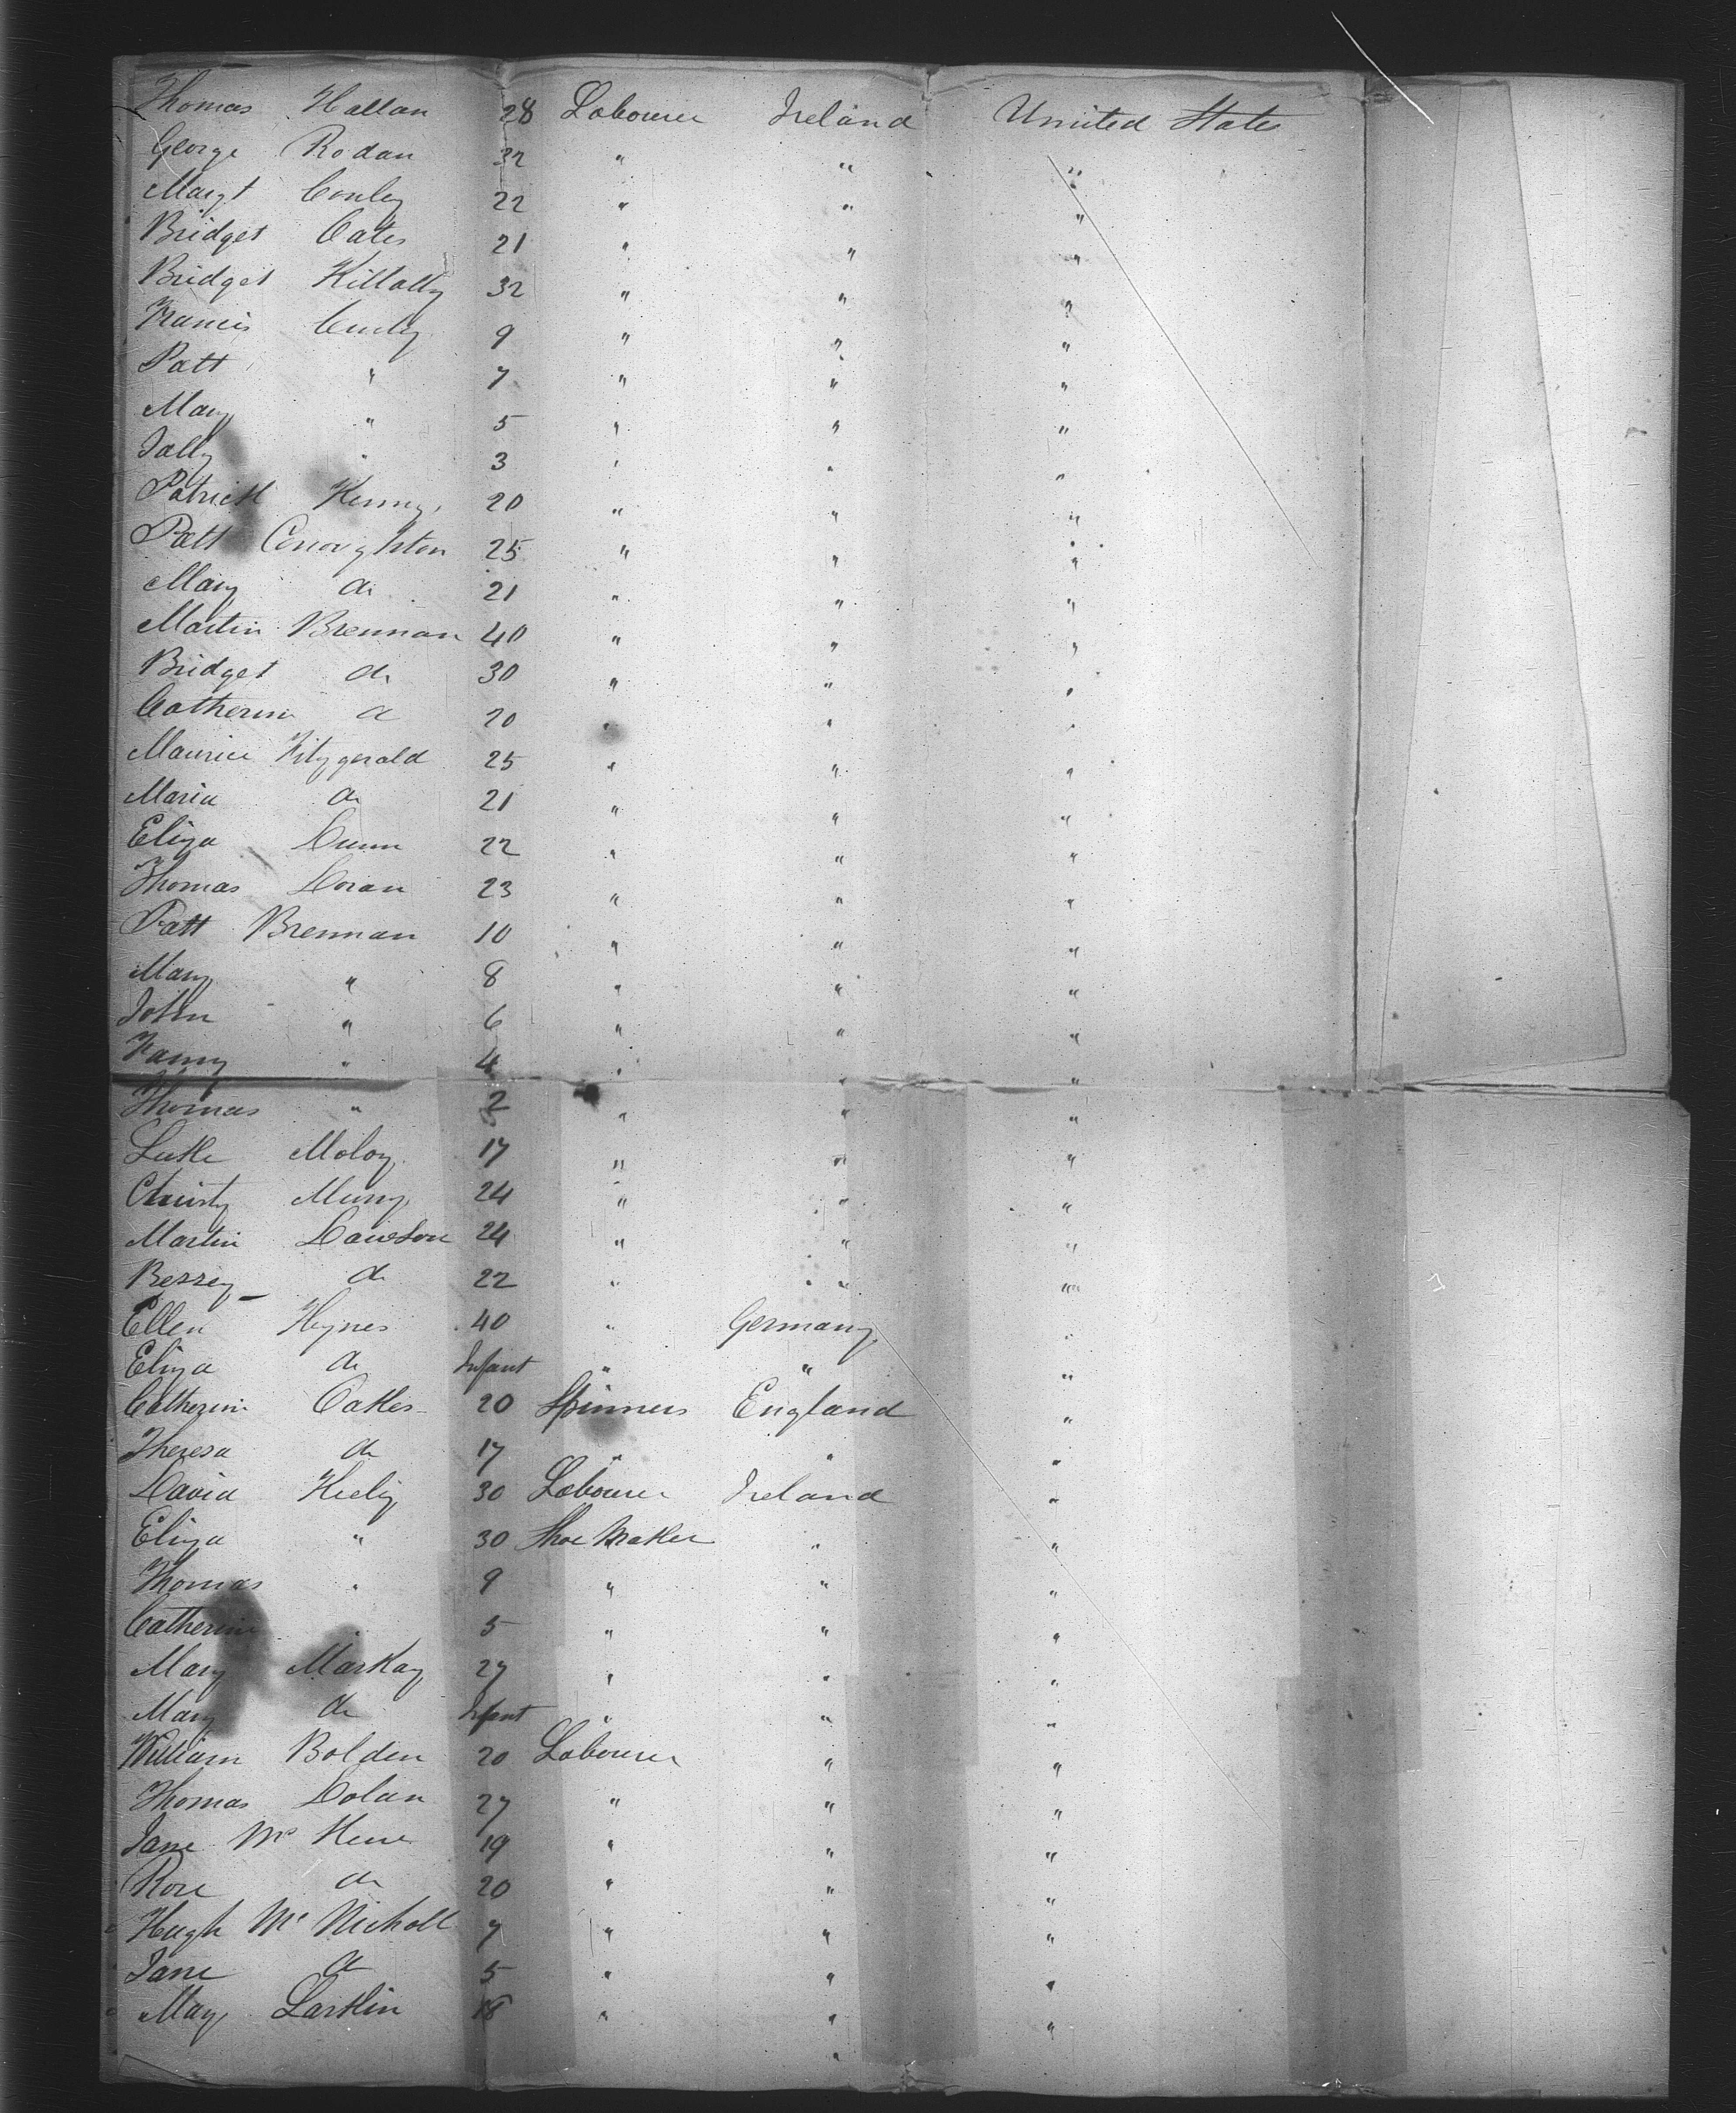 Thomas Hallan 28 Labourer Ireland United States
George Rodan 32 " " "
Margt Conley 22 " " "
Bridget Cates 21 " " "
Bridget Killally 32 " " "
Francis Curly 9 " " "
Patt " 7 " " "
Mary " 5 " " "
Sally " 3 " " "
Patrick Kenny, 20 " " "
Patt Conoughton 25 " " "
Mary do 21 " " "
Martin Brennan 40 " " "
Bridget do 30 " " "
Catherin do 20 " " "
Maurice Fitzgerald 25 " " "
Maria do 21 " " "
Eliza Dunn 22 " " "
Thomas Doran 23 " " "
Patt Brennan 10 " " "
Mary " 8 " " "
John " 6 " " "
Fanny " 4 " " "
Thomas " 2 " " "
Luke Moloy 17 " " "
Christy 24 " " "
Martin Dawson 24 " " "
Bessey do 22 " " "
Ellen Hynes 40 " Germany "
Eliza do Infant " " "
Catherin Oakes 20 Spinners England "
Theresa do 17 " " "
David Heely 30 Labourer Ireland "
Eliza " 30 Shoe Maker " "
Thomas " 9 " " "
Catherin " 5 " " "
Mary MacKay 27 " " "
Mary do Infant " " "
William Bolden 20 Labourer " "
Thomas Dolan 27 " " "
Jane Mc 19 " " "
Rose do 20 " " "
Hugh Mc Nicholl 7 " " "
Jane do 5 " " "
Mary Larkin 18 " " "